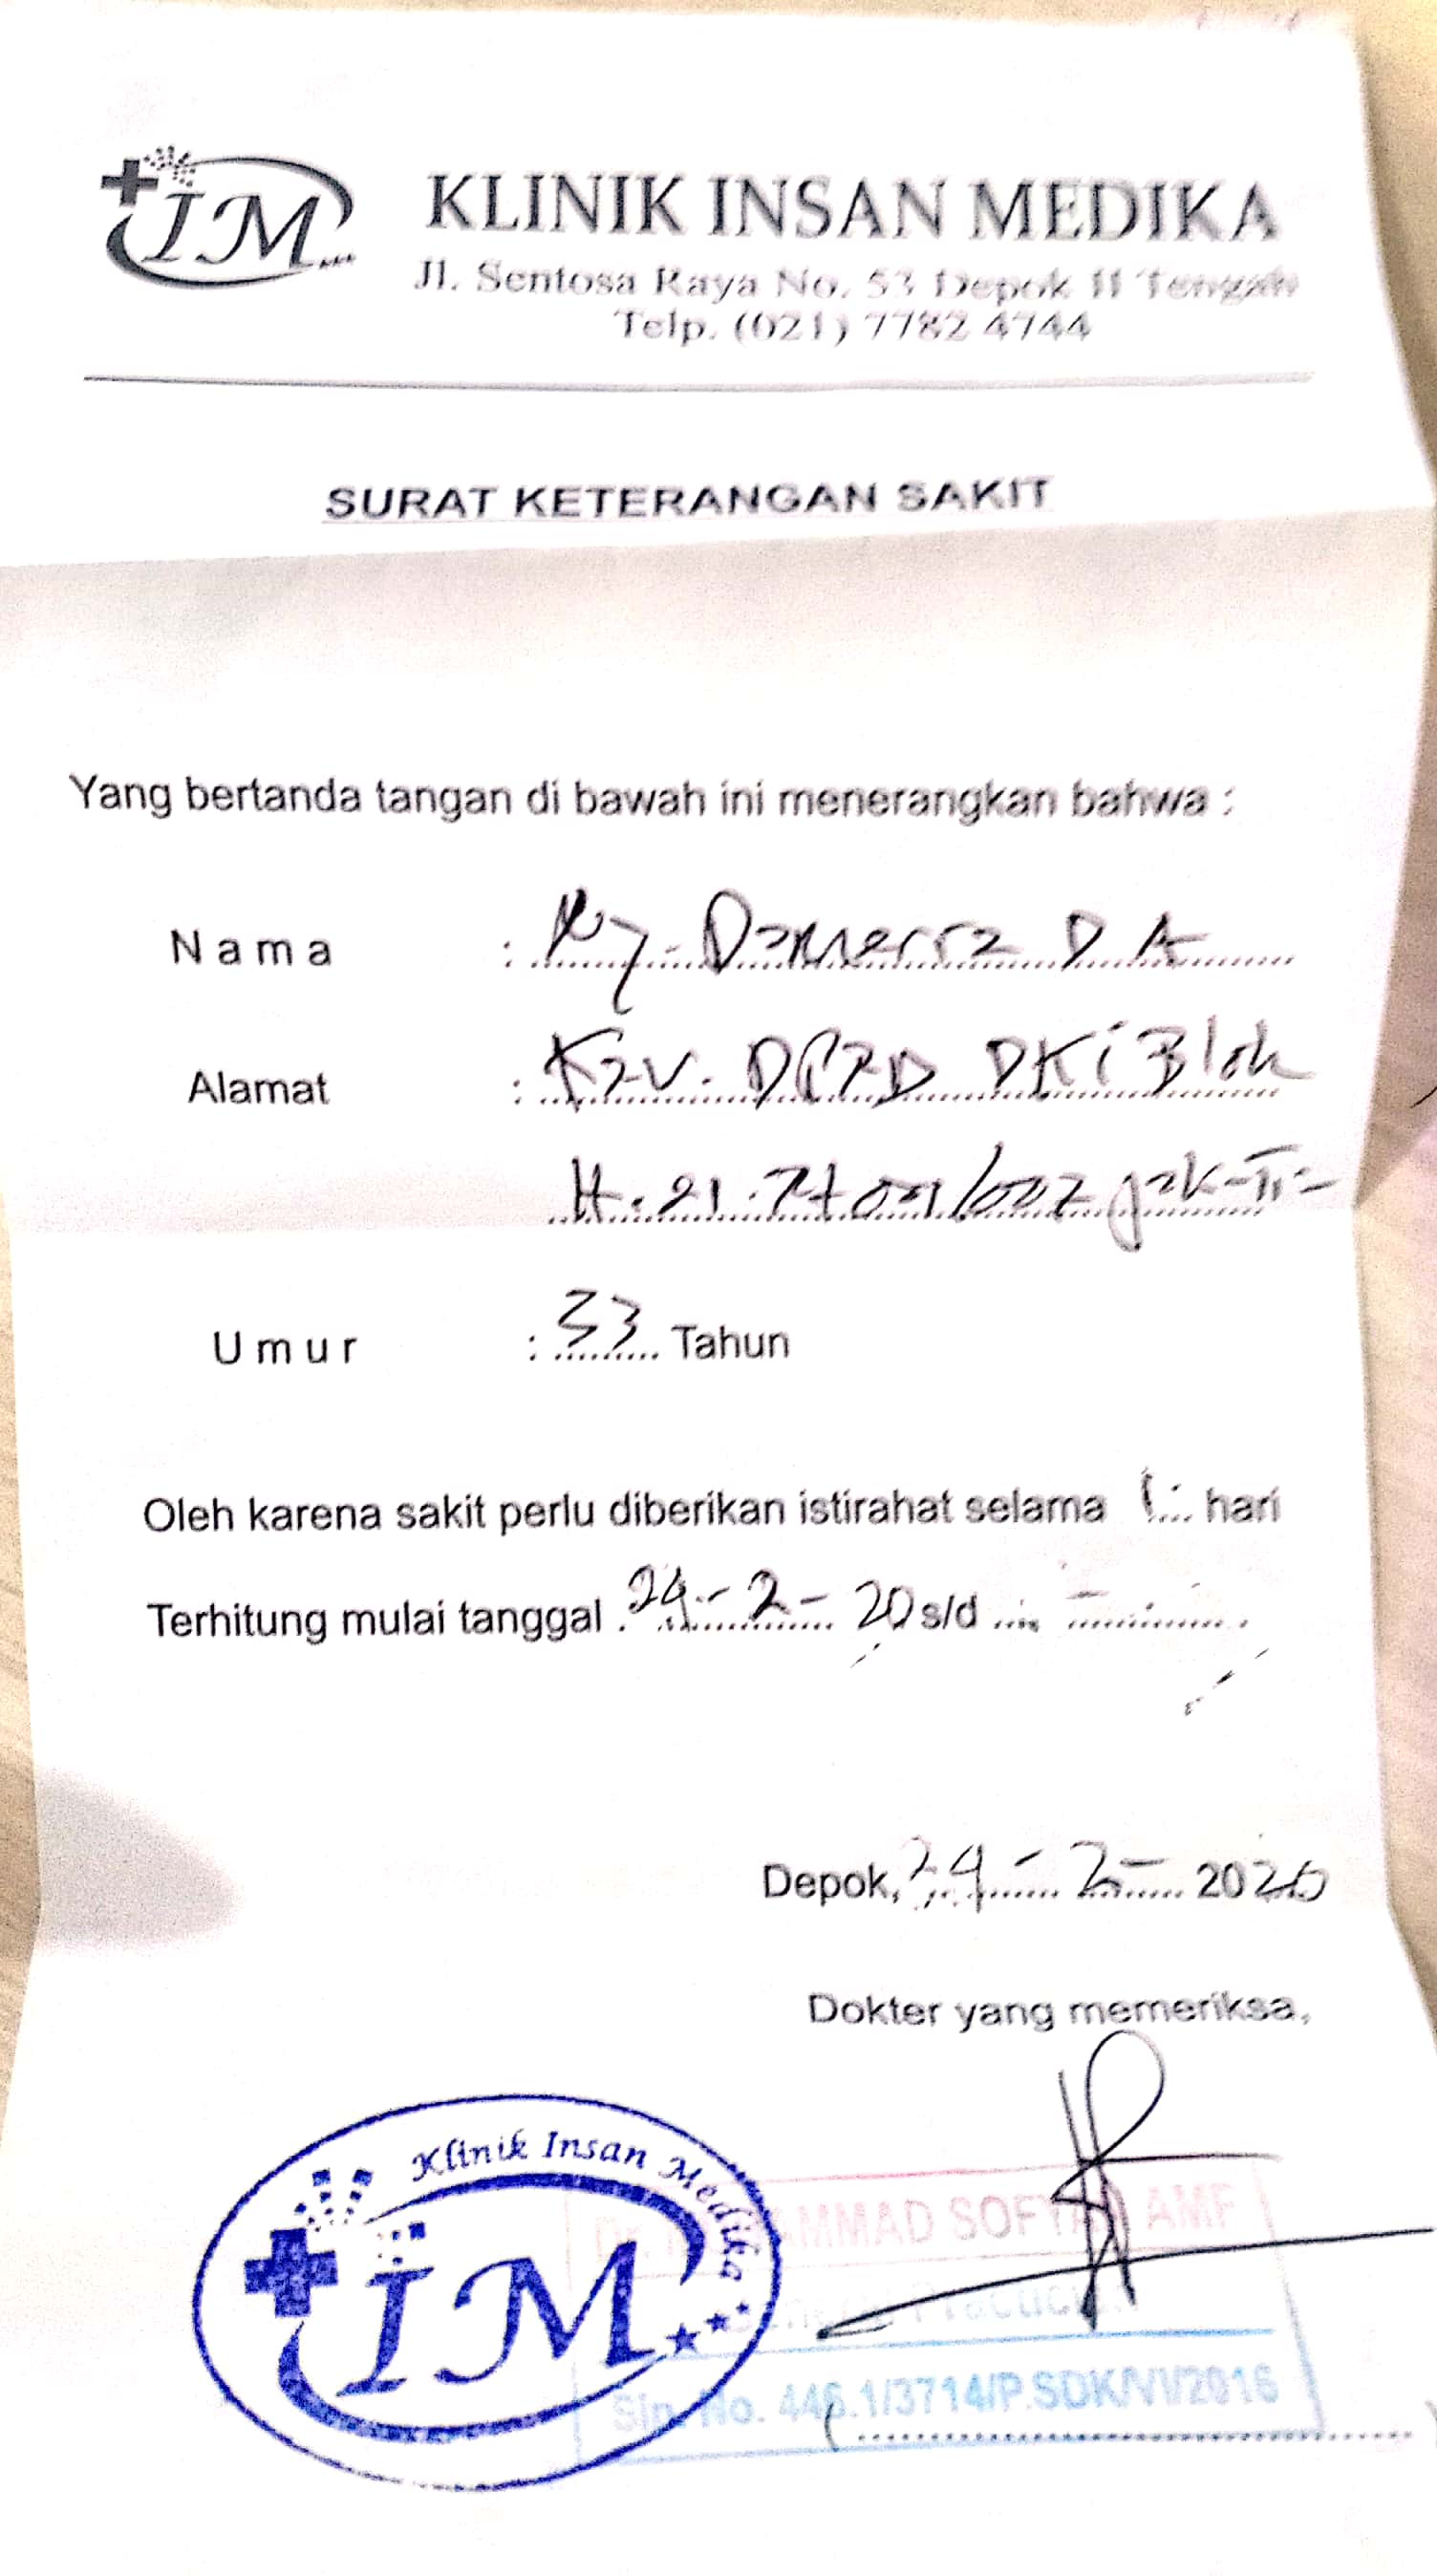 IM
KLINIK INSAN MEDIKA
Jl. Sentosa Raya No. 53 Depok II Tengah
Telp. (021) 7782 4744
SURAT KETERANGAN SAKIT
Yang bertanda tangan di bawah ini menerangkan bahwa :
Nama : Ny. D A
Alamat : Kav. DPRD DKI Blok
H. 21. Rt 001/007 Jak-Ti-
Umur : 33 Tahun
Oleh karena sakit perlu diberikan istirahat selama 1 hari
Terhitung mulai tanggal 24 - 2 - 20 s/d -
Depok, 24 - 2 - 2020
Dokter yang memeriksa,
Klinik Insan Medika
IM
Dr. MUHAMMAD SOFYAN AMF
Sip. No. 446.1/3714/P.SDK/VI/2016